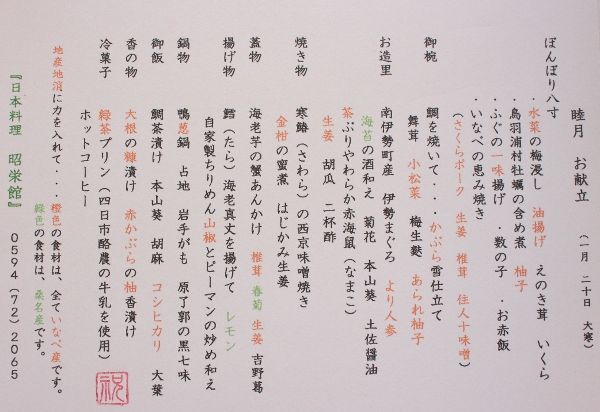 睦月 お献立 (一月 二十日 大寒)
ぼんぼり八寸
・水菜の梅浸し 油揚げ えのき茸 いくら
・鳥羽浦村牡蠣の含め煮 柚子
・ふぐの一味揚げ ・数の子 ・お赤飯
・いなべの恵み焼き
(さくらポーク 生姜 椎茸 住人十味噌)
御椀 鯛を焼いて・・・かぶら雪仕立て
舞茸 小松菜 梅生麩 あられ柚子
お造里 南伊勢町産 伊勢まぐろ より人参
海苔の酒和え 菊花 本山葵 土佐醤油
茶ぶりやわらか赤海鼠(なまこ)
生姜 胡瓜 二杯酢
焼き物 寒鰆(さわら)の西京味噌焼き
金柑の蜜煮 はじかみ生姜
蓋物 海老芋の蟹あんかけ 椎茸 春菊 生姜 吉野葛
揚げ物 鱈(たら)海老真丈を揚げて レモン
自家製ちりめん山椒とピーマンの炒め和え
鍋物 鴨葱鍋 占地 岩手がも 原了郭の黒七味
御飯 鯛茶漬け 本山葵 胡麻 コシヒカリ 大葉
香の物 大根の糠漬け 赤かぶらの柚香漬け
冷菓子 緑茶プリン(四日市酪農の牛乳を使用)
ホットコーヒー
祝
地産地消に力を入れて・・・橙色の食材は、全ていなべ産です。
緑色の食材は、桑名産です。
『日本料理 昭栄館』 0594(72)2065